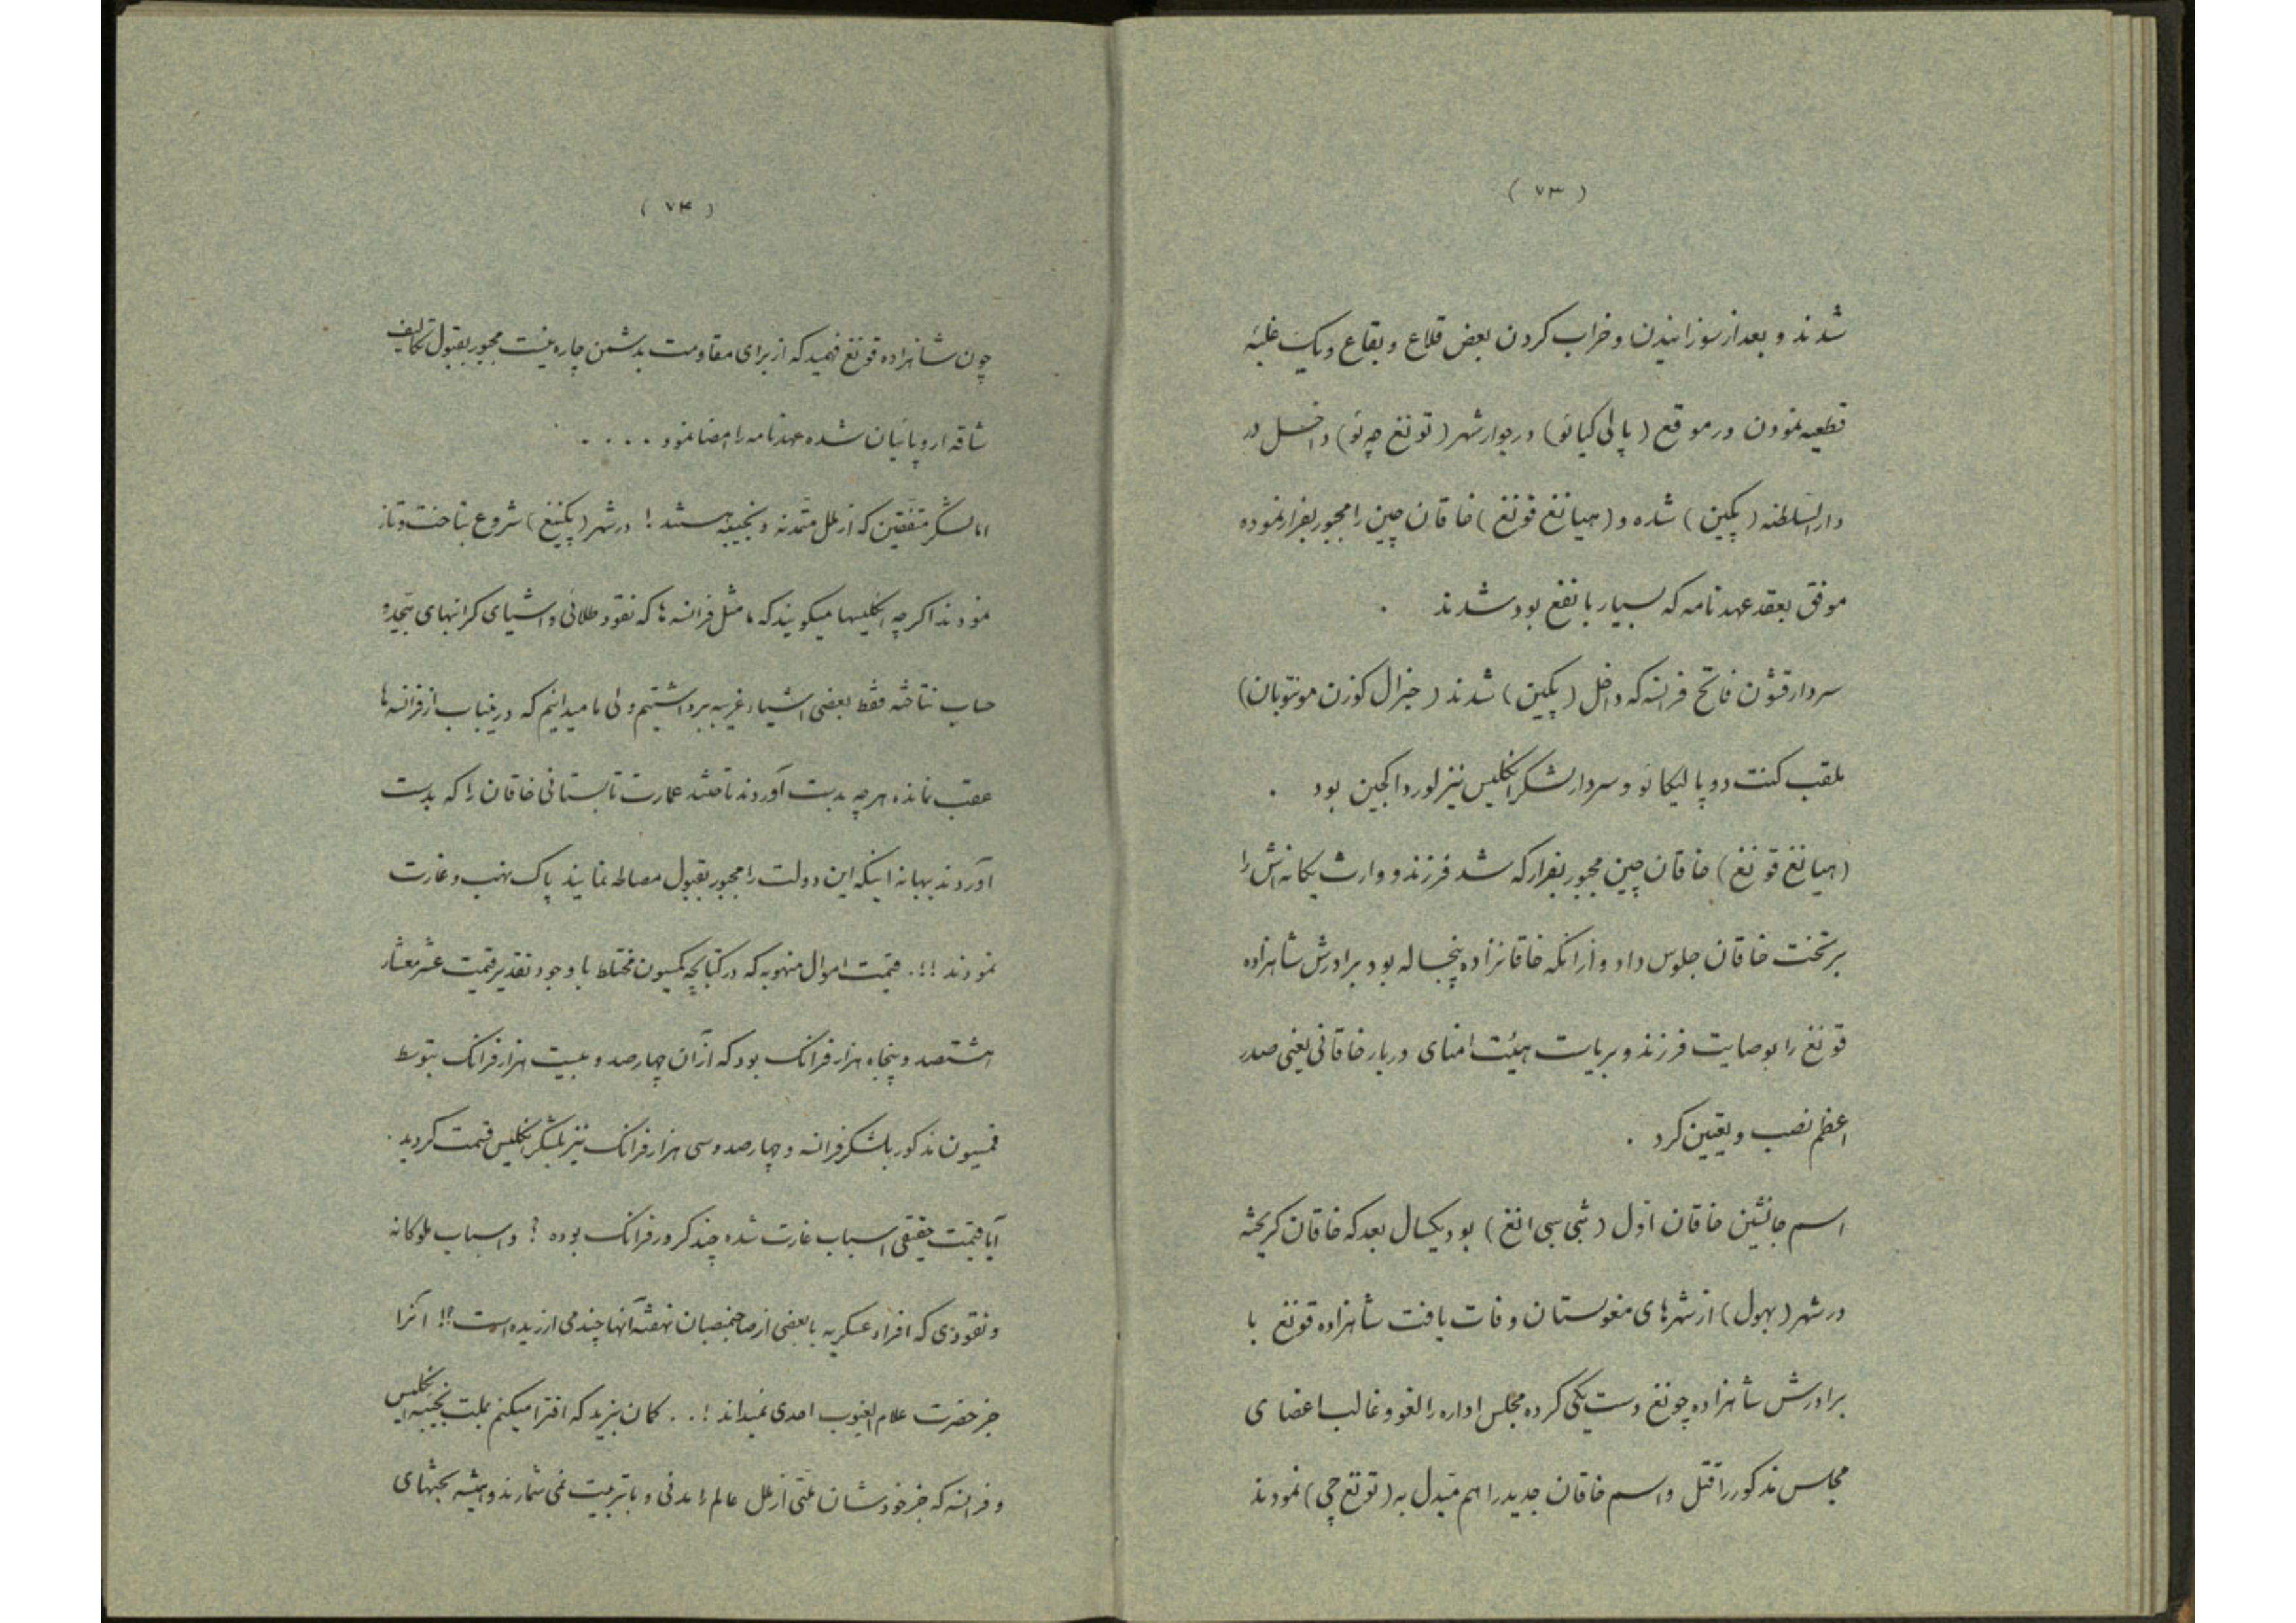 ( ۷۳ )
شدند و بعد از سوزانیدن و خراب کردن بعض قلاع و بقاع و یک غلبهٔ
قطعیه نمودن در موقع ( پالی کیائو ) در جوار شهر ( تونغ چه ئو ) داخل در
دار السلطنه ( پکین ) شده و ( هیانغ فونغ ) خاقان چین را مجبور بفرار نموده
موفق بعقد عهدنامه که بسیار با نفع بود شدند .
سردار قشون فاتح فرانسه که داخل ( پکین ) شدند ( جنرال کوزن مونتوبان )
ملقب کنت دو پالیکائو و سردار لشکر انکلیس نیز لورد الجین بود .
( هیانغ فونغ ) خاقان چین مجبور بفرار که شد فرزند و وارث یکانه اش را
بر تخت خاقان جلوس داد و از انکه خاقانزاده پنجساله بود برادرش شاهزاده
قونغ را بوصایت فرزند و بریاست هیئت امنای دربار خاقانی یعنی صدر
اعظم نصب و تعیین کرد .
اسم جانشین خاقان اول ( شی سی انغ ) بود یکسال بعد که خاقان کریخته
در شهر ( یهول ) از شهرهای مغولستان وفات یافت شاهزاده قونغ با
برادرش شاهزاده چونغ دست یکی کرده مجلس اداره را لغو و غالب اعضای
مجلس مذکور را قتل و اسم خاقان جدید را هم مبدل به ( تونغ چی ) نمودند
( ۷۴ )
چون شاهزاده قونغ فهمید که از برای مقاومت بدشمن چاره نیست مجبور بقبول تکالیف
شاقه اروپائیان شده عهدنامه را امضا نمود . . . .
اما لشکر متفقین که از ملل متمدنه و نجیبه هستند ! در شهر ( پکینغ ) شروع بتاخت و تاز
نمودند اکر چه انکلیسها میکویند که ما مثل فرانسه ها که نقود طلائی و اشیای کرانبهای بیحد و
حساب نتاخته فقط بعضی اشیاء غریبه برداشتیم ولی ما میدانیم که در نیباب از فرانسه ها
عقب نمانده هر چه بدست آوردند تاختند عمارت تابستانی خاقان را که بدست
آوردند ببهانه اینکه این دولت را مجبور بقبول مصالحه نمایند پاک نهب و غارت
نمودند !!. قیمت اموال منهوبه که در کتابچه کمیسون مختلط با وجود تقدیر قیمت عشر معشار
هشتصد و پنجاه هزار فرانک بود که از آن چهار صد و بیست هزار فرانک بتوسط
قمسیون مذکور بلشکر فرانسه و چهار صد و سی هزار فرانک نیز بلشکر انکلیس قسمت کردید .
آیا قیمت حقیقی اسباب غارت شده چند کرور فرانک بوده ? و اسباب ملوکانه
و نقودی که افراد عسکریه یا بعضی از صاحبمنصبان نهفته آنها چند می ارزیده است !? انرا
جز حضرت علام الغیوب احدی نمیداند ! . . کمان نبرید که افترا میکنم بملت نجیبه انکلیس
و فرانسه که جز خودشان ملتی از ملل عالم را مدنی و با تربیت نمی شمارند و همیشه بحثهای